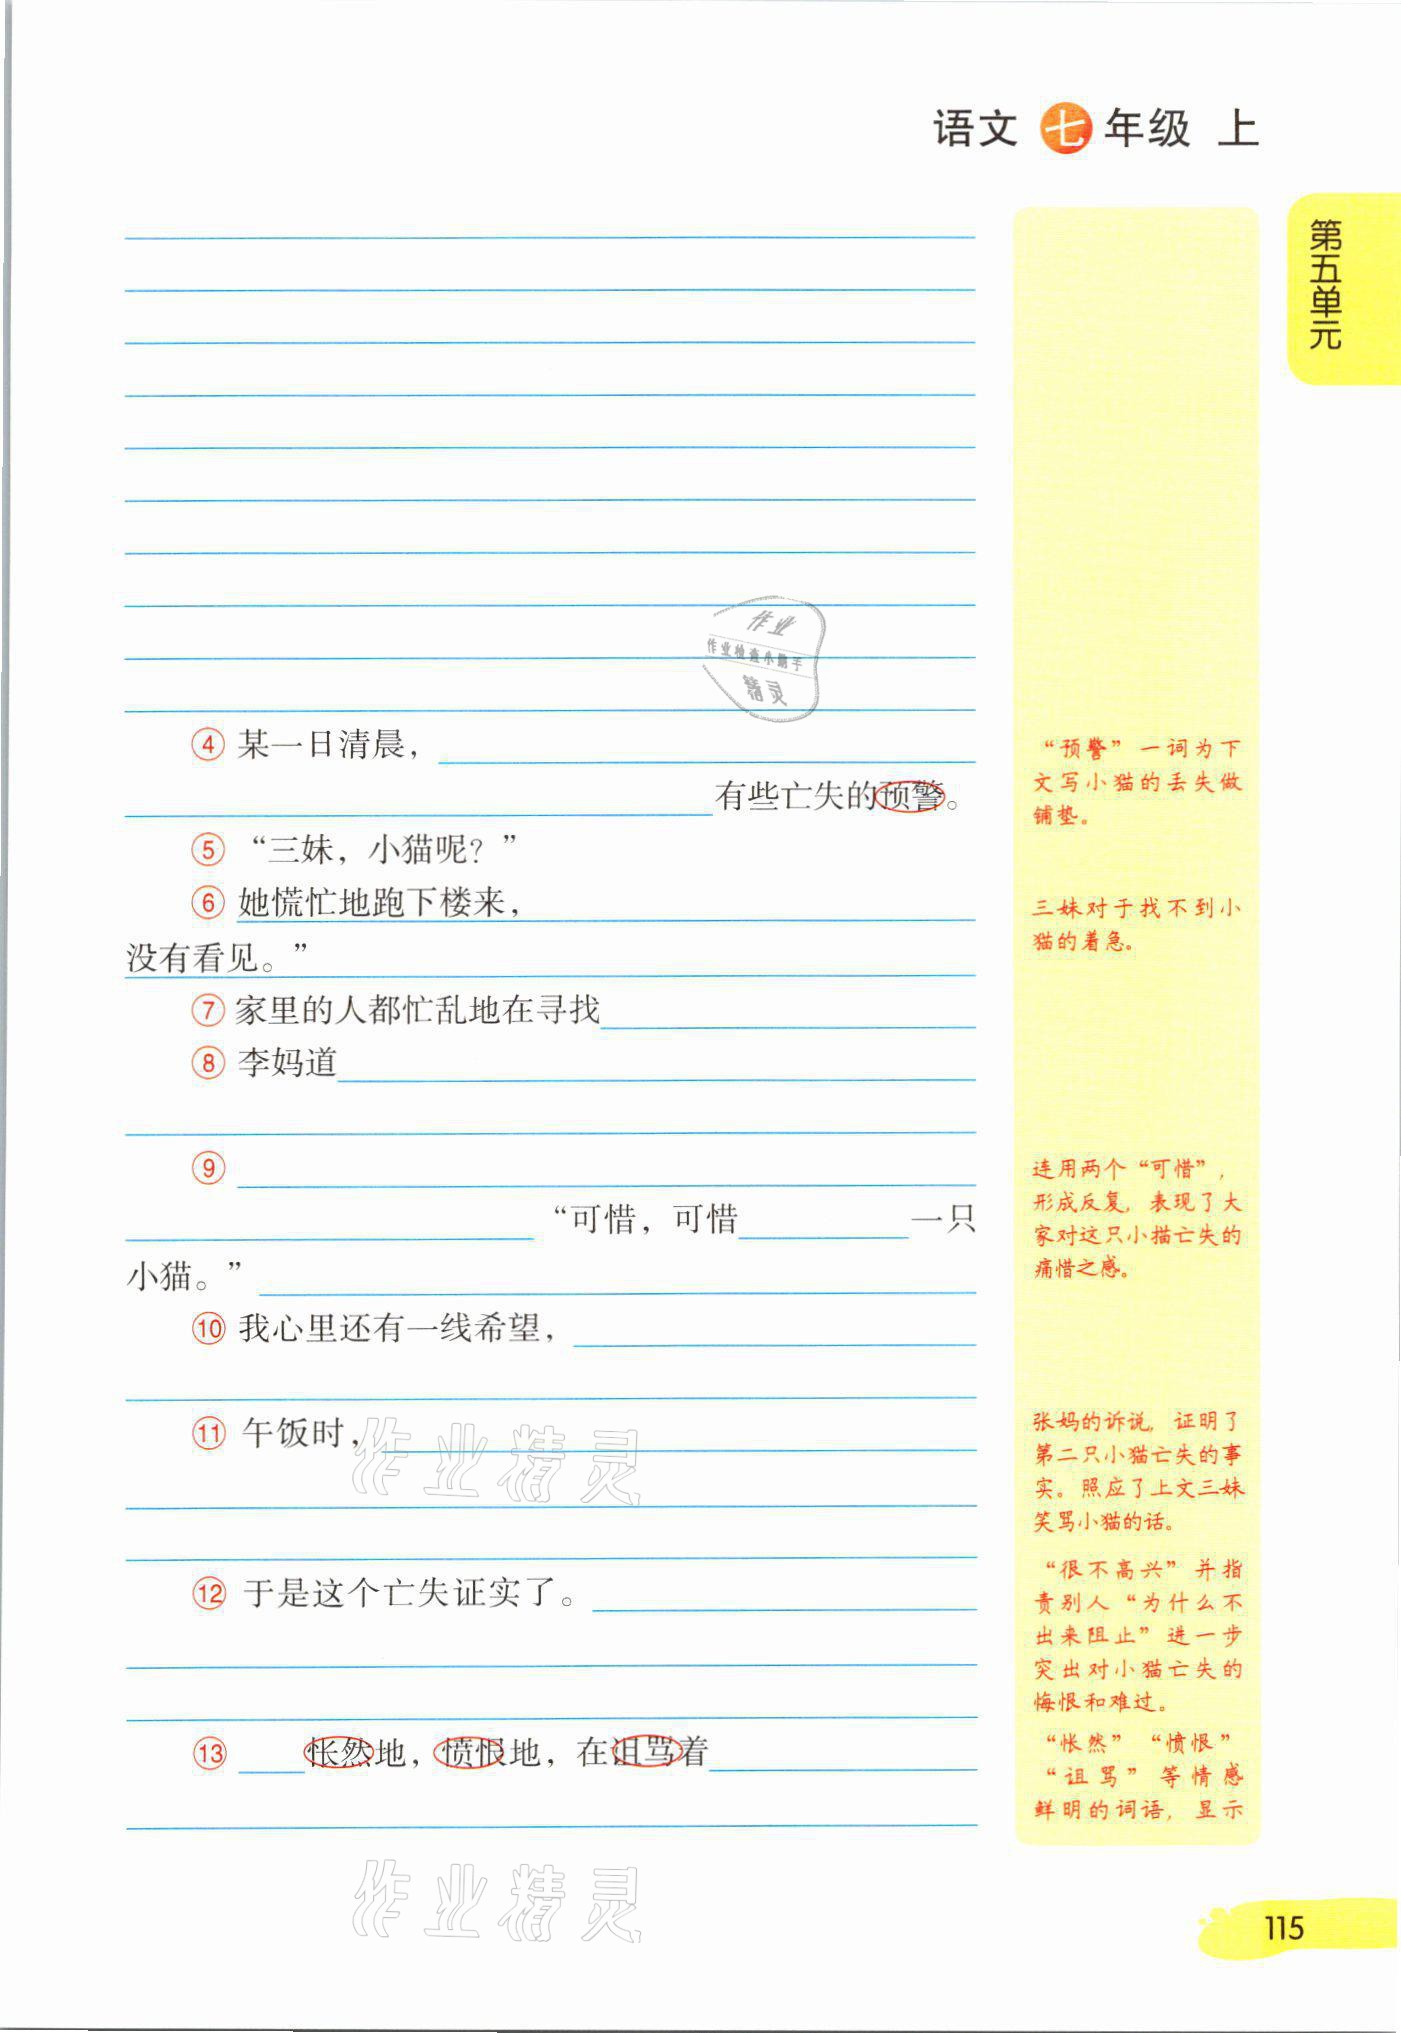 语文 七 年级 上
第五单元
④ 某一日清晨，
有些亡失的预警。
⑤ “三妹，小猫呢？”
⑥ 她慌忙地跑下楼来，
没有看见。”
⑦ 家里的人都忙乱地在寻找
⑧ 李妈道
⑨
“可惜，可惜 一只
小猫。”
⑩ 我心里还有一线希望，
⑪ 午饭时，
⑫ 于是这个亡失证实了。
⑬ 怅然地，愤恨地，在诅骂着
“预警”一词为下
文写小猫的丢失做
铺垫。
三妹对于找不到小
猫的着急。
连用两个“可惜”，
形成反复，表现了大
家对这只小猫亡失的
痛惜之感。
张妈的诉说，证明了
第二只小猫亡失的事
实。照应了上文三妹
笑骂小猫的话。
“很不高兴”并指
责别人“为什么不
出来阻止”进一步
突出对小猫亡失的
悔恨和难过。
“怅然”“愤恨”
“诅骂”等情感
鲜明的词语，显示
作业
作业检查小助手
精灵
作业精灵
作业精灵
115